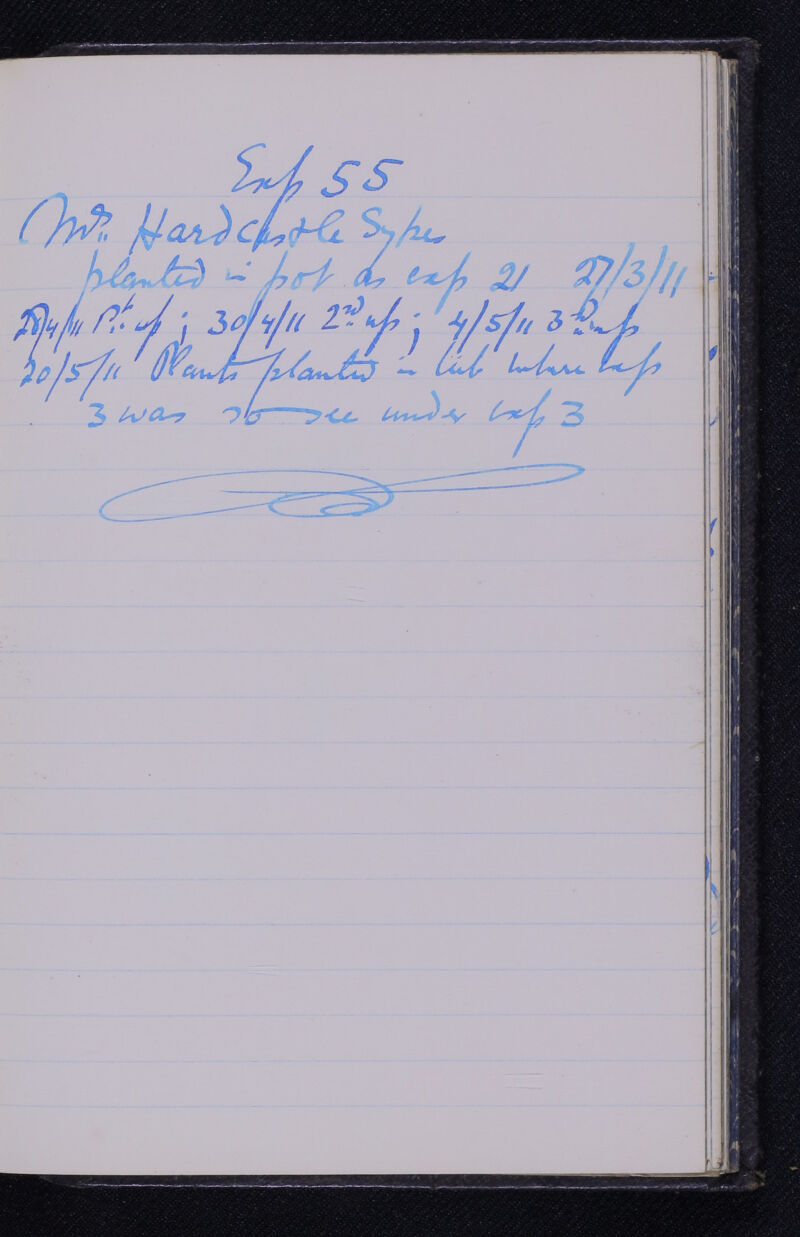 Exp 55
Mrs. Hardcastle Sykes
planted in pot as exp 21 27/3/11
28/4/11 1st up ; 30/4/11 2nd up ; 4/5/11 3rd up
20/5/11 Plants planted in tub where exp
3 was so see under exp 3